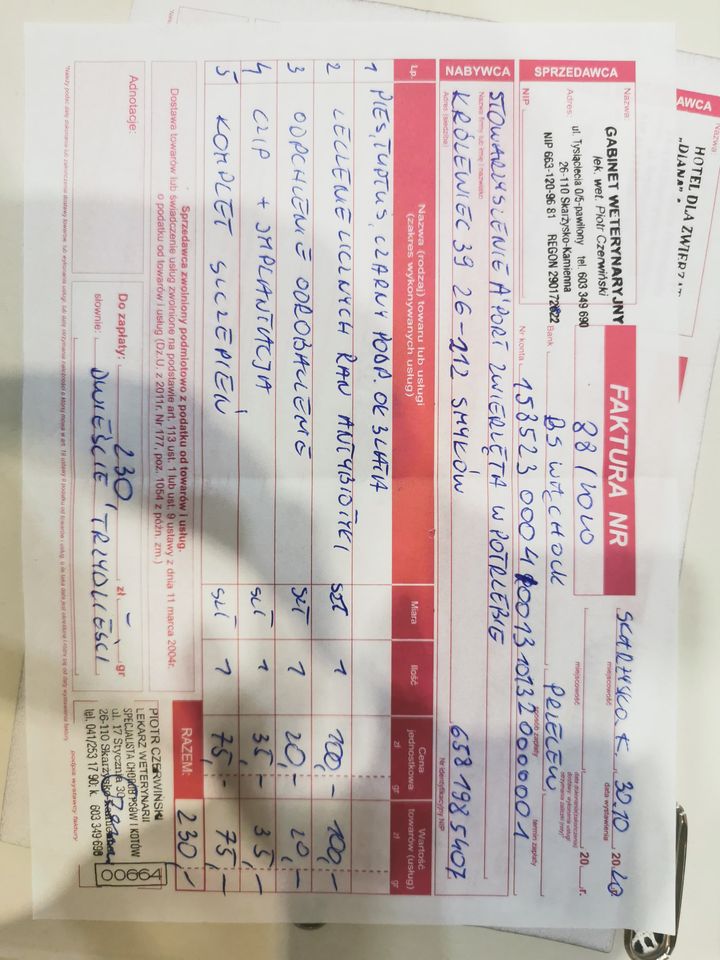 Nazwa:
GABINET WETERYNARYJNY
lek. wet. Piotr Czerwiński
Adres: ul. Tysiąclecia 0/5-pawilony tel. 603 349 690
26-110 Skarżysko-Kamienna
NIP NIP 663-120-96 81 REGON 290172822
SPRZEDAWCA
FAKTURA NR
28/2020
SKARŻYSKO K 30.10 20 20
miejscowość data wystawienia
miejscowość 20 r.
Bank BS WĄCHOCK PRZELEW
sposób zapłaty termin zapłaty
Nr konta
NABYWCA
Nazwa firmy lub imię i nazwisko:
STOWARZYSZENIE A'PORT ZWIERZĘTA W POTRZEBIE
Adres (siedziba):
KRÓLEWIEC 39 26-212 SMYKÓW
658 198 5407
Nr identyfikacyjny NIP
Lp. Nazwa (rodzaj) towaru lub usługi Miara Ilość Cena Wartość
(zakres wykonywanych usług) jednostkowa towarów (usług)
zł zł gr
1 PIES, TUPTUŚ, CZARNY PODP. OK 3 LATA
2 LECZENIE LICZNYCH RAN ANTYBIOTYKI szt 1 100,- 100,-
3 ODPCHLENIE ODROBACZENIE szt 1 20,- 20,-
4 CZIP + IMPLANTACJA szt 1 35,- 35,-
5 KOMPLET SZCZEPIEŃ szt 1 75,- 75,-
RAZEM: 230,-
Sprzedawca zwolniony podmiotowo z podatku od towarów i usług.
Dostawa towarów lub świadczenie usług zwolnione na podstawie art. 113 ust. 1 lub ust. 9 ustawy z dnia 11 marca 2004r.
o podatku od towarów i usług (Dz.U. z 2011r. Nr 177, poz. 1054 z późn. zm.)
Adnotacje:
Do zapłaty: 230 zł - gr
słownie: DWIEŚCIE TRZYDZIEŚCI
PIOTR CZERWIŃSKI
LEKARZ WETERYNARII
SPECJALISTA CHORÓB PSÓW I KOTÓW
ul. 17 Stycznia 30
26-110 Skarżysko-Kamienna
tel. 041/253 17 90; k. 603 349 690
00664
podpis wystawcy faktury
HOTEL DLA ZWIERZĄT
"DIANA"